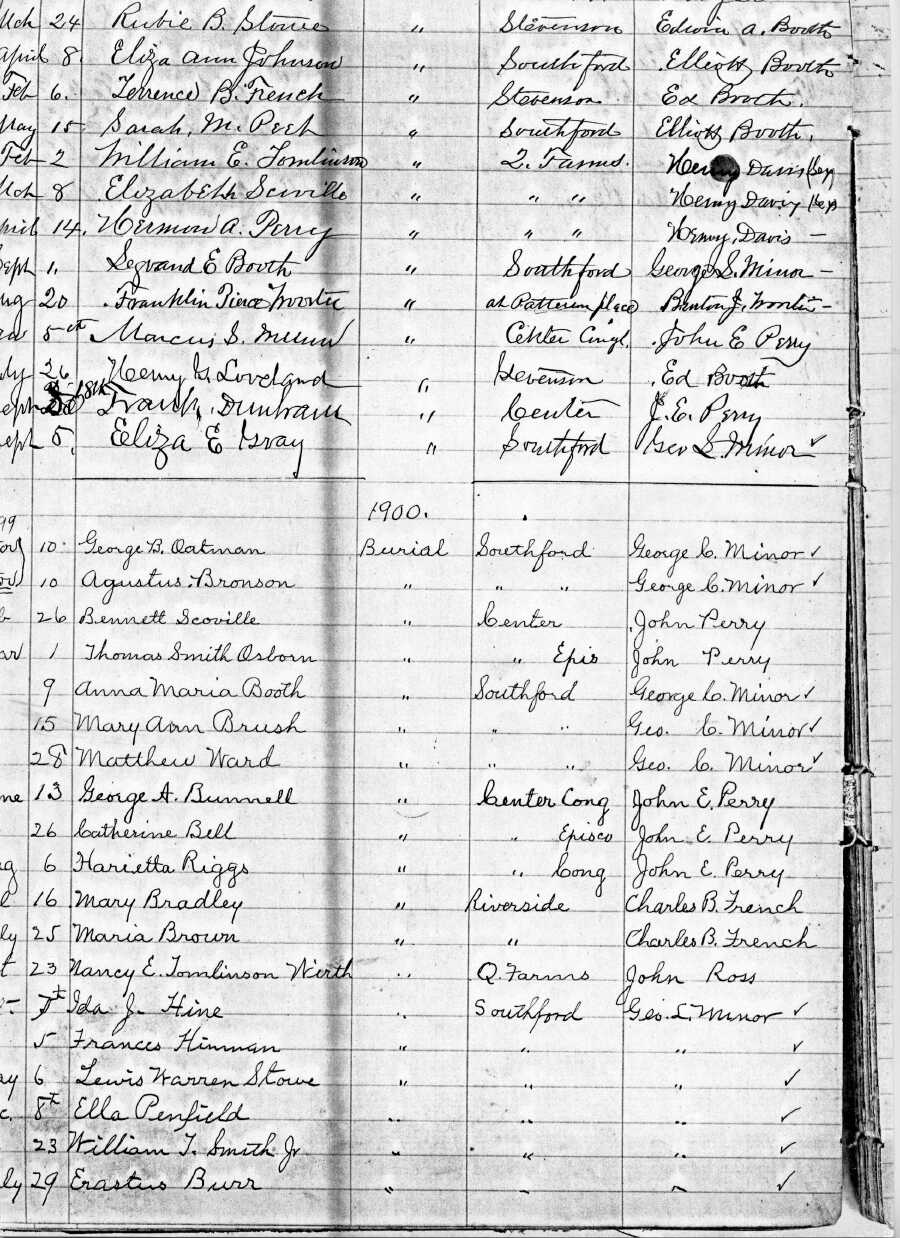 Mch 24 Rubie B. Stowe " Stevenson Edwin A. Booth
April 8 Eliza Ann Johnson " Southford Elliott Booth
Feb 6. Terrence B. French " Stevenson Ed Booth.
May 15 Sarah, M. Peck " Southford Elliott Booth.
Feb 2 William E. Tomlinson " Q. Farms. Henry Davis (Sex)
Mch 8 Elizabeth Scoville " " " Henry Davis (Sex)
April 14. Hermon A. Perry " " " Henry, Davis –
Sept 1. Legrand E Booth " Southford George S. Minor –
ug 20 Franklin Pierce Wooster " at Patterson place Benton J. Wooster –
5th Marcus S. Munn " Center Congl. John E Perry
uly 26 Henry G. Loveland " Stevenson Ed Booth
Sept 18th Frank Dunham " Center J. E. Perry
Sept 5. Eliza E Gray " Southford Geo S. Minor ✓
1900.
99
10 George B. Oatman Burial Southford George C. Minor ✓
10 Agustus Bronson " " " George C. Minor ✓
b 26 Bennett Scoville " Center John Perry
ar 1 Thomas Smith Osborn " " Epis John Perry
9 Anna Maria Booth " Southford George C. Minor ✓
15 Mary Ann Brush " " " Geo. C. Minor ✓
28 Matthew Ward " " " Geo. C. Minor ✓
ne 13 George A. Bunnell " Center Cong John E. Perry
26 Catherine Bell " " Episco John E. Perry
g 6 Harietta Riggs " " Cong John E. Perry
16 Mary Bradley " Riverside Charles B. French
ly 25 Maria Brown " " Charles B. French
t 23 Nancy E. Tomlinson Wirth " Q. Farms John Ross
Ida J. Hine " Southford Geo. S. Minor ✓
5 Frances Hinman " " " ✓
ay 6 Lewis Warren Stowe " " " ✓
c. 8t Ella Penfield " " " ✓
23 William T. Smith Jr " " " ✓
ly 29 Erastus Burr " " " ✓